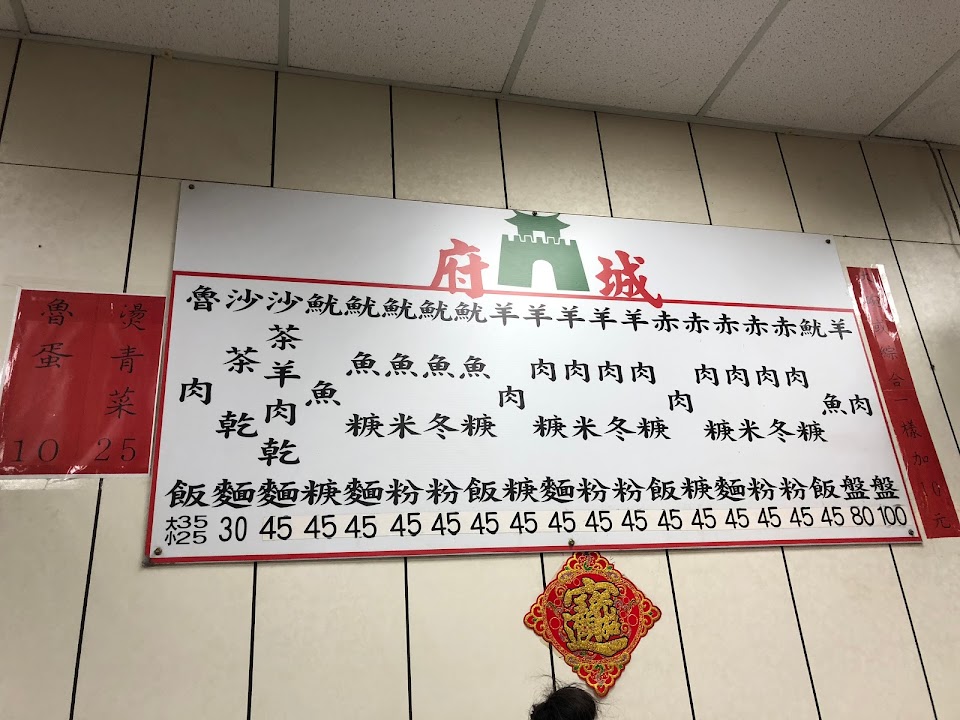 府城
魯蛋 10
燙青菜 25
魯肉飯 大35 小25
沙茶乾麵 30
沙茶羊肉乾麵 45
魷魚糠 45
魷魚糠麵 45
魷魚米粉 45
魷魚冬粉 45
魷魚糠飯 45
羊肉糠 45
羊肉糠麵 45
羊肉米粉 45
羊肉冬粉 45
羊肉糠飯 45
赤肉糠 45
赤肉糠麵 45
赤肉米粉 45
赤肉冬粉 45
赤肉糠飯 45
魷魚盤 80
羊肉盤 100
綜合一樣加10元